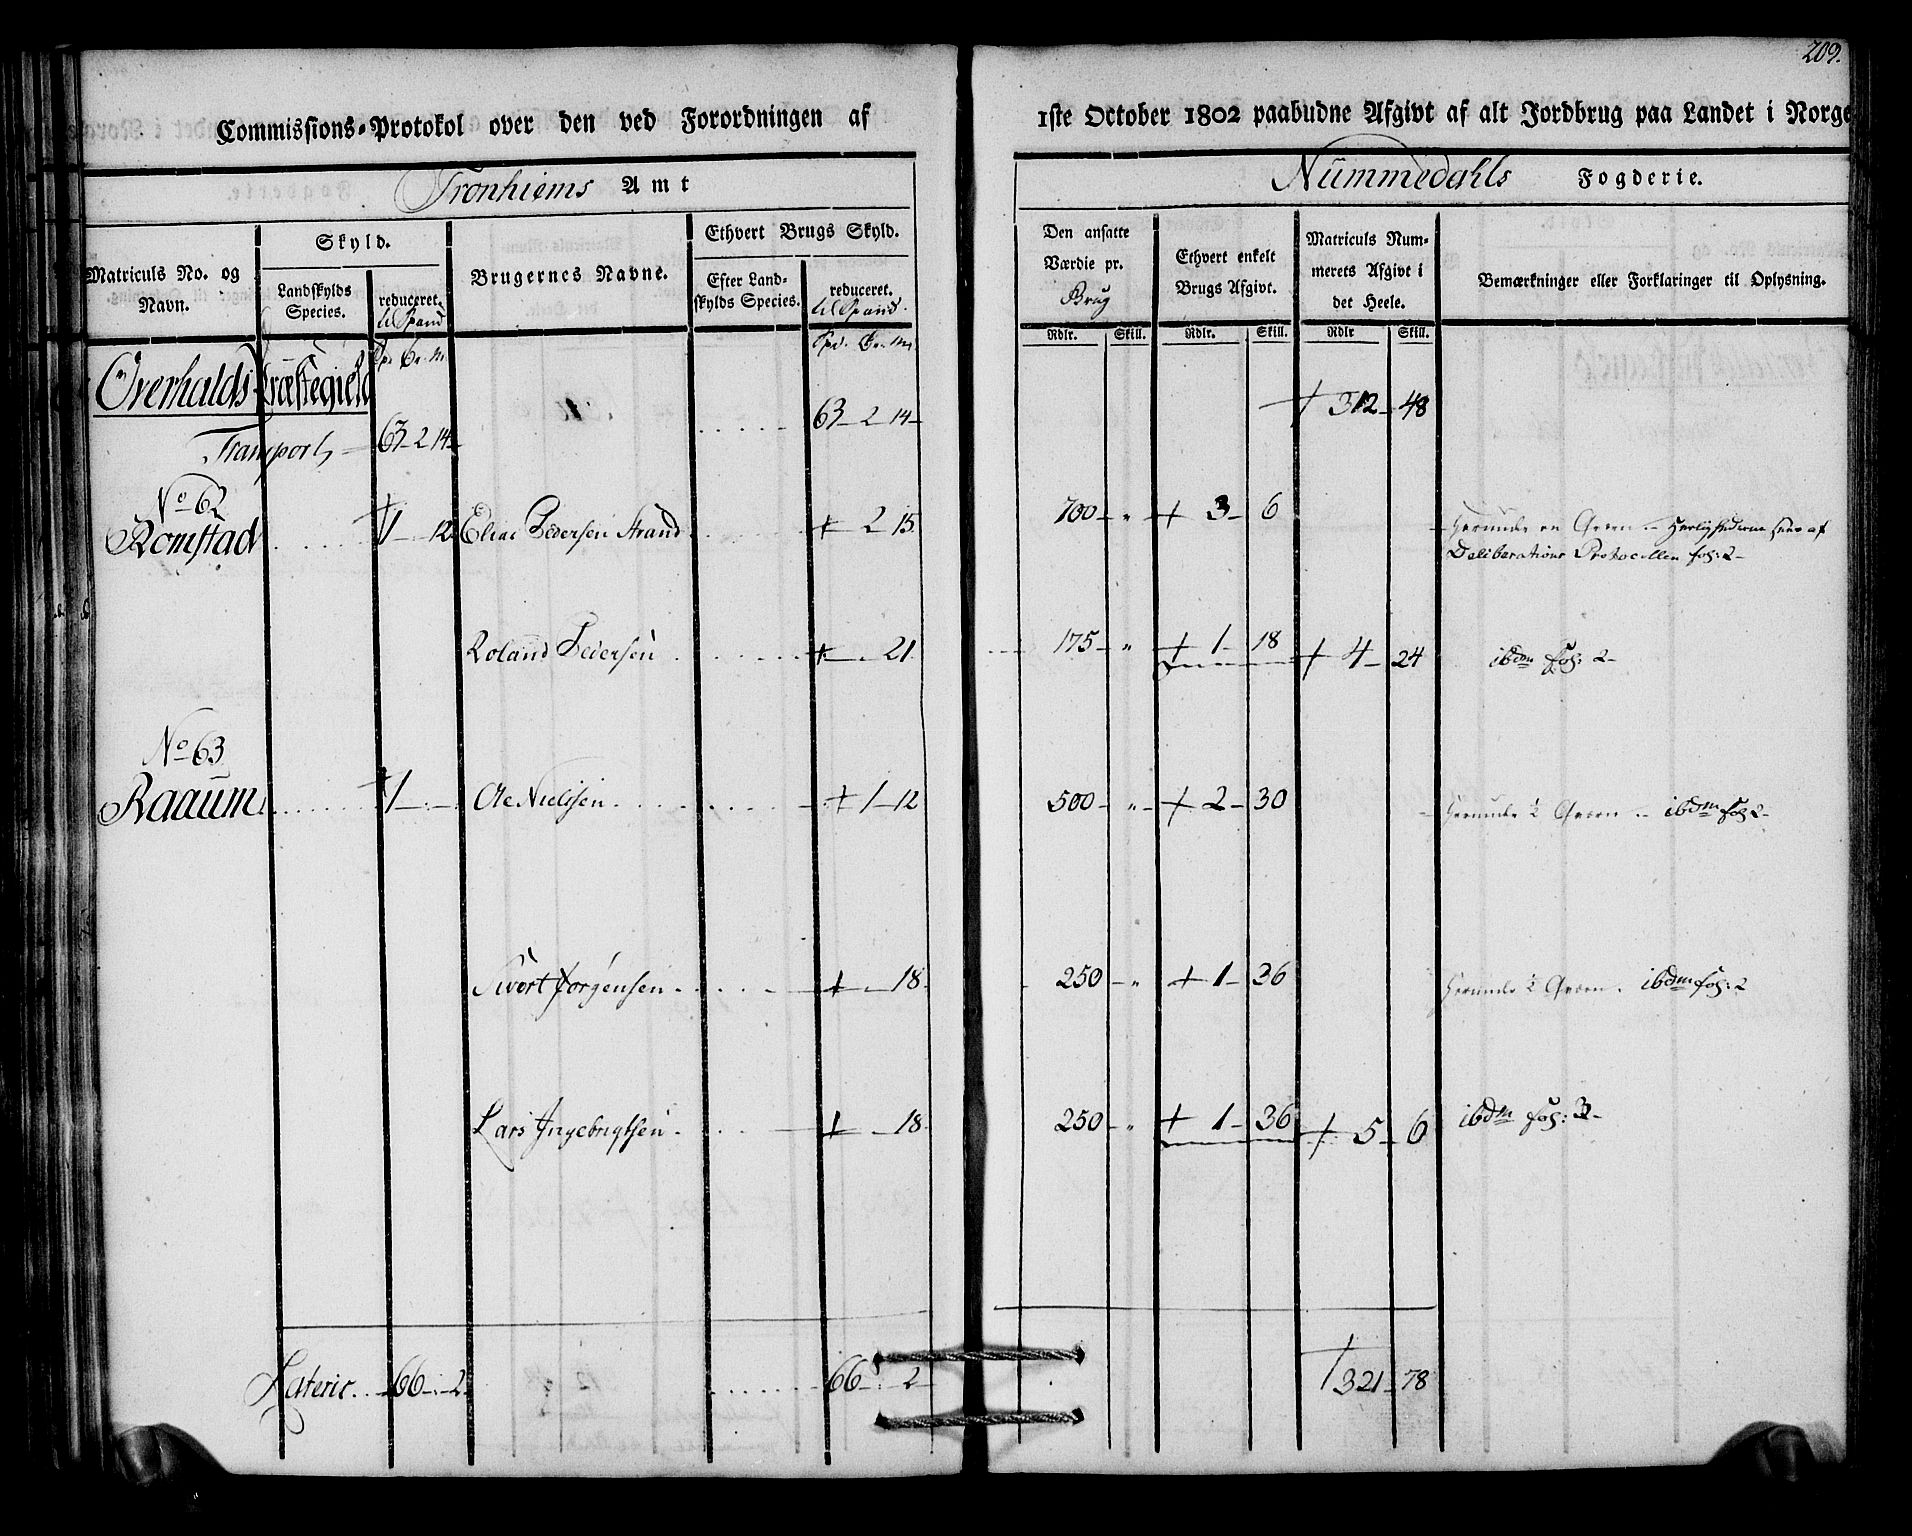 209.
Commissions-Protokol over den ved Forordningen af 1ste October 1802 paabudne Afgivt af alt Jordbrug paa Landet i Norge
Tronhiems Amt
Nummedahls Fogderie.
Matriculs No. og Navn.
Skyld.
Landskylds Species.
reduceret til Spand
Brugernes Navne.
Ethvert Brugs Skyld.
Efter Landskylds Species.
reduceret. til Spand.
Den ansatte Værdie pr. Brug
Ethvert enkelt Brugs Afgivt.
Matriculs Nummerets Afgivt i det Heele.
Bemærkninger eller Forklaringer til Oplysning.
Rdlr. Skill. Rdlr. Skill. Rdlr Skill.
Overhalds Præstegield
Transport 63 - 2 14 63 - 2 14 312 - 48
No 62
Romstad 1 - 12 Elias Pedersen Strand 2 15 700 - " 3 - 6 Herunder en Qværn
Deliberations Protocollen fol: 2
Roland Pedersen 21 175 - " 1 - 18 4 - 24 ibdm fol: 2
No 63
Raaum 1 Ole Nielssen 1 - 12 500 - " 2 - 30 Herunder 1 Qværn ibdm fol 2
Sivert Jørgensen 18 250 - " 1 - 36 Herunder 1 Qværn ibdm fol: 2
Lars Ingebrigtsen 18 250 - " 1 - 36 5 - 6 ibdm fol:
Lateris 66 - 2 66 - 2 321 - 78